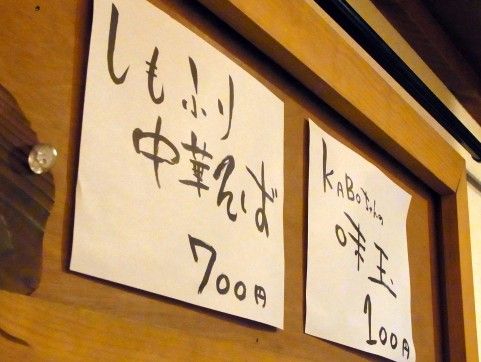 しもふり
中華そば
700円
KABOちゃんの
味玉
100円